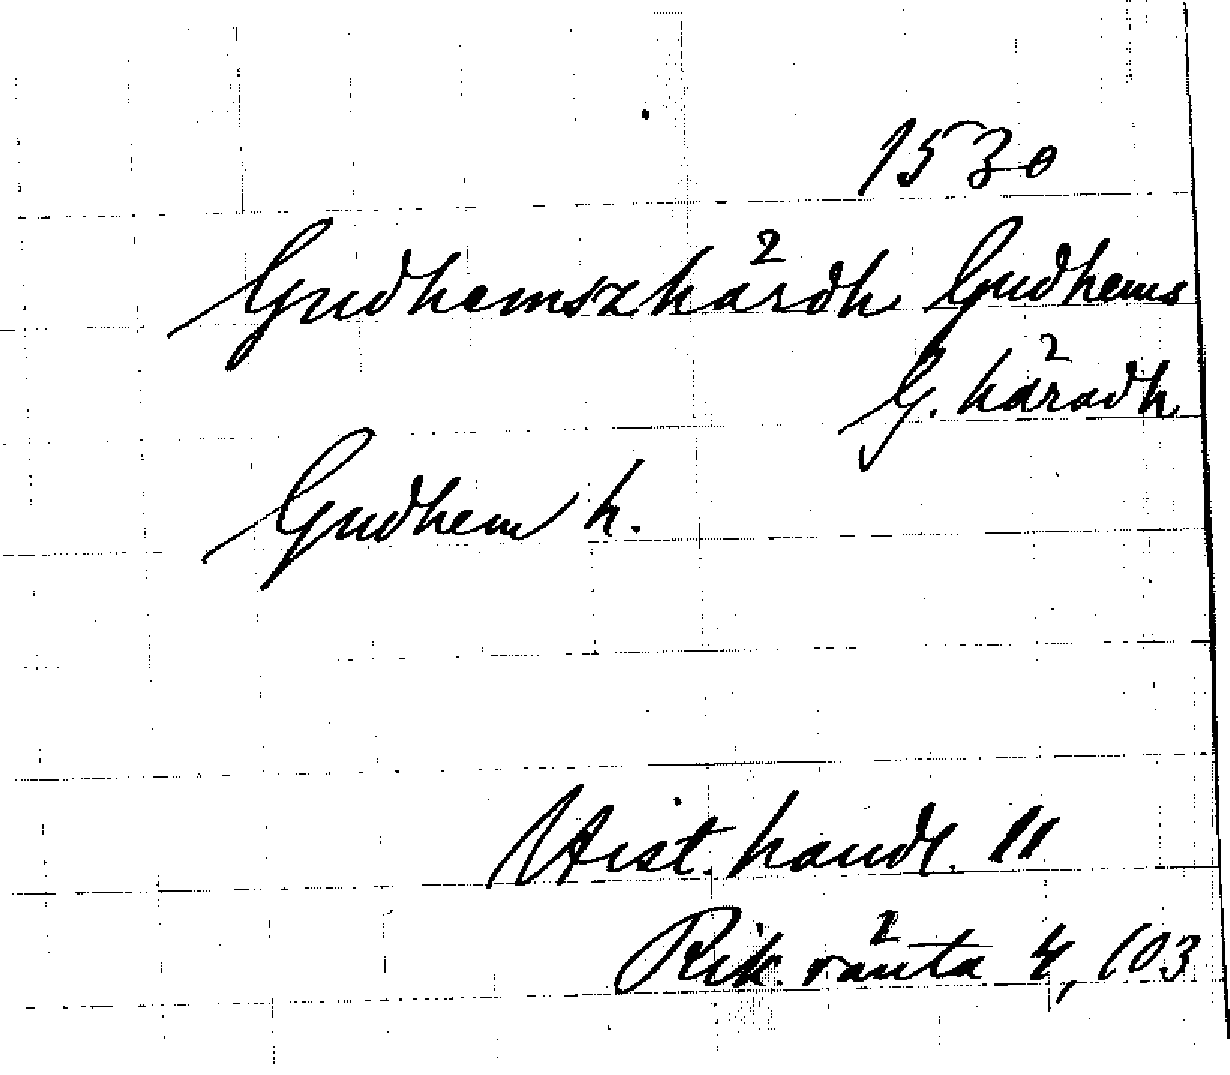 1530
Gudhemszhärdh Gudhems
G. häradh
Gudhem h.
Hist. handl. 11
Rik. ränta 4, 103